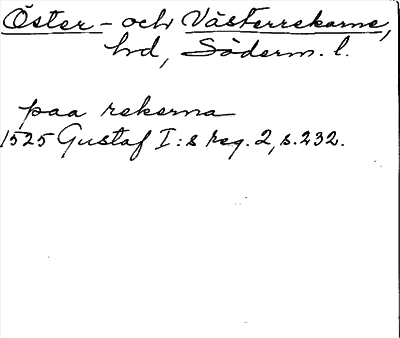 Öster- och Västerrekarne,
hd, Söderm. l.
paa rekerna
1525 Gustaf I:s reg. 2, s. 232.